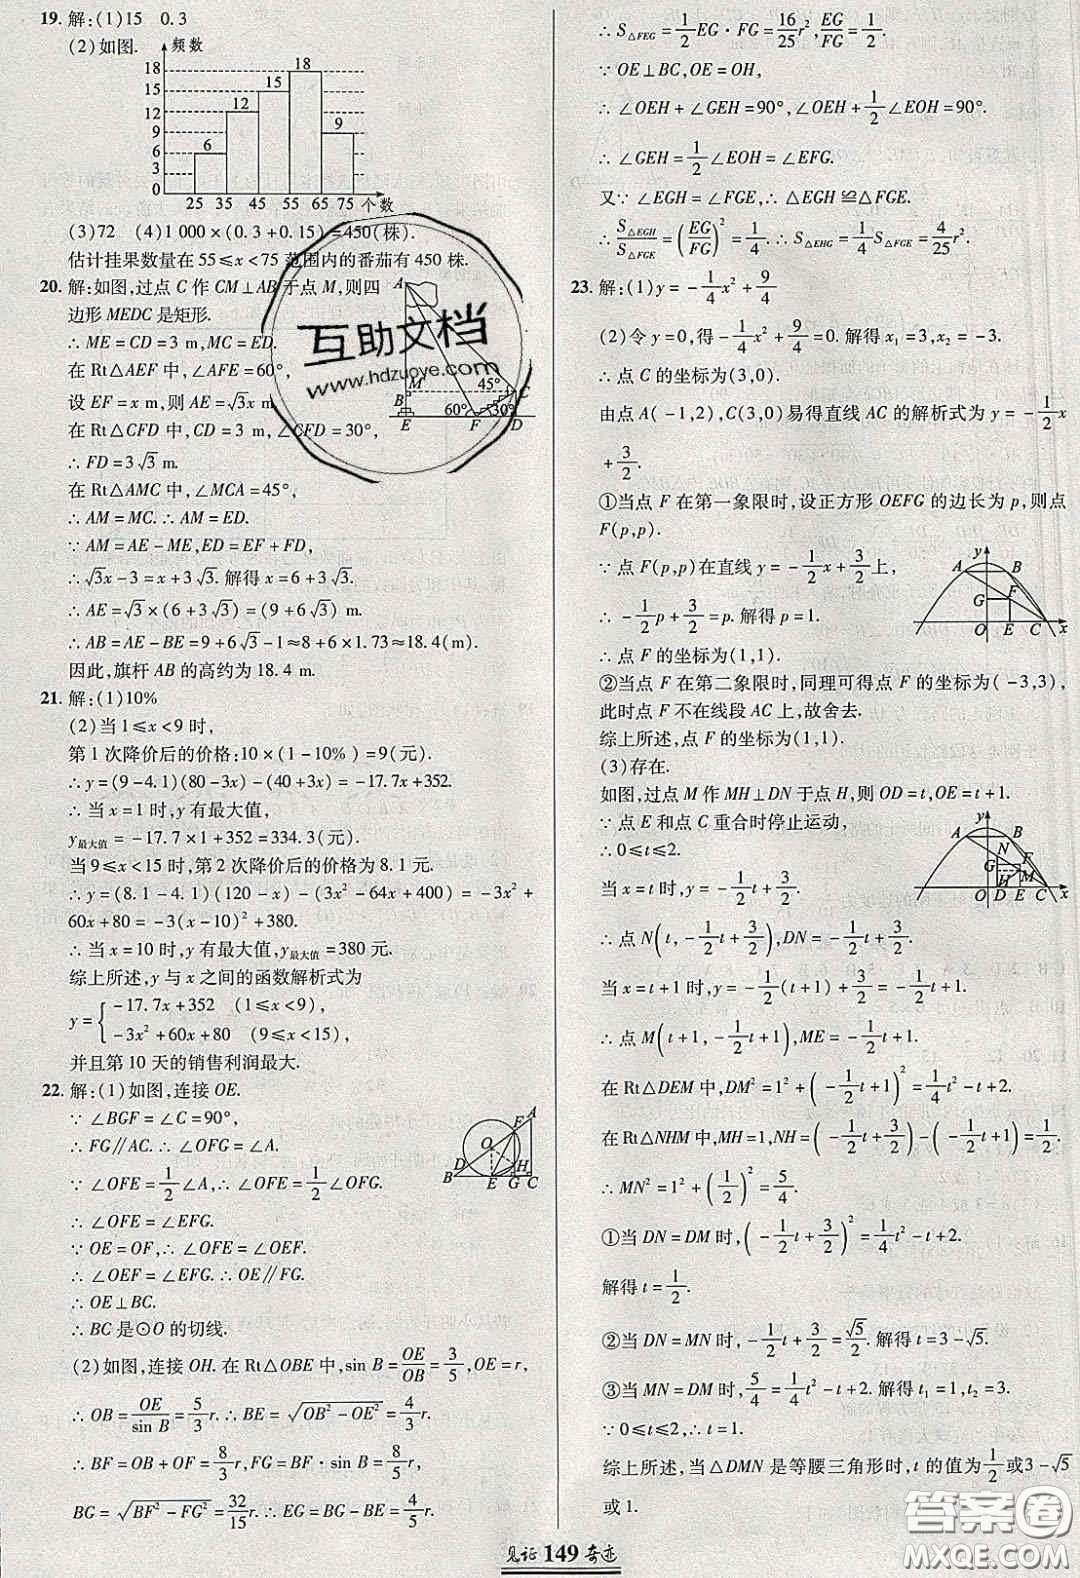 19. 解:(1)15　0.3
(2)如图.
频数
18
15
12
9
6
3
0
6
12
15
18
9
25 35 45 55 65 75 个数
(3)72　(4)1 000×(0.3+0.15)=450(株).
估计挂果数量在 55≤x<75 范围内的番茄有 450 株.
20. 解:如图,过点 C 作 CM⊥AB 于点 M,则四
边形 MEDC 是矩形.
∴ME=CD=3 m,MC=ED.
在 Rt△AEF 中,∠AFE=60°,
设 EF=x m,则 AE=√3x m.
在 Rt△CFD 中,CD=3 m,∠CFD=30°,
∴FD=3√3 m.
在 Rt△AMC 中,∠MCA=45°,
∴AM=MC. ∴AM=ED.
∵AM=AE-ME,ED=EF+FD,
∴√3x-3=x+3√3. 解得 x=6+3√3.
∴AE=√3×(6+3√3)=(9+6√3) m.
∴AB=AE-BE=9+6√3-1≈8+6×1.73≈18.4(m).
因此,旗杆 AB 的高约为 18.4 m.
A
M 45° C
B
60° 30°
E F D
21. 解:(1)10%
(2)当 1≤x<9 时,
第 1 次降价后的价格:10×(1-10%)=9(元).
∴y=(9-4.1)(80-3x)-(40+3x)=-17.7x+352.
∴当 x=1 时,y 有最大值,
y最大值=-17.7×1+352=334.3(元).
当 9≤x<15 时,第 2 次降价后的价格为 8.1 元.
∴y=(8.1-4.1)(120-x)-(3x²-64x+400)=-3x²+
60x+80=-3(x-10)²+380.
∴当 x=10 时,y 有最大值,y最大值=380 元.
综上所述,y 与 x 之间的函数解析式为
y={-17.7x+352 (1≤x<9),
-3x²+60x+80 (9≤x<15),
并且第 10 天的销售利润最大.
22. 解:(1)如图,连接 OE.
∵∠BGF=∠C=90°,
∴FG∥AC. ∴∠OFG=∠A.
∵∠OFE=1/2∠A,∴∠OFE=1/2∠OFG.
∴∠OFE=∠EFG.
∵OE=OF,∴∠OFE=∠OEF.
∴∠OEF=∠EFG. ∴OE∥FG.
∴OE⊥BC.
∴BC 是⊙O 的切线.
A
F
O
D H
B E G C
(2)如图,连接 OH. 在 Rt△OBE 中,sin B=OE/OB=3/5,OE=r,
∴OB=OE/sin B=5/3r. ∴BE=√(OB²-OE²)=4/3r.
∴BF=OB+OF=8/3r,∴FG=BF·sin B=8/5r.
BG=√(BF²-FG²)=32/15r. ∴EG=BG-BE=4/5r.
∴S△FEG=1/2EG·FG=16/25r²,EG/FG=1/2.
∵OE⊥BC,OE=OH,
∴∠OEH+∠GEH=90°,∠OEH+1/2∠EOH=90°.
∴∠GEH=1/2∠EOH=∠EFG.
又∵∠EGH=∠FGE,∴△EGH≌△FGE.
∴S△EGH/S△FGE=(EG/FG)²=1/4. ∴S△EHG=1/4S△FGE=4/25r².
23. 解:(1)y=-1/4x²+9/4
(2)令 y=0,得-1/4x²+9/4=0. 解得 x₁=3,x₂=-3.
∴点 C 的坐标为(3,0).
由点 A(-1,2),C(3,0)易得直线 AC 的解析式为 y=-1/2x
+3/2.
①当点 F 在第一象限时,设正方形 OEFG 的边长为 p,则点
F(p,p).
∵点 F(p,p)在直线 y=-1/2x+3/2上,
∴-1/2p+3/2=p. 解得 p=1.
∴点 F 的坐标为(1,1).
y
A B
G F
O E C x
②当点 F 在第二象限时,同理可得点 F 的坐标为(-3,3),
此时点 F 不在线段 AC 上,故舍去.
综上所述,点 F 的坐标为(1,1).
(3)存在.
如图,过点 M 作 MH⊥DN 于点 H,则 OD=t,OE=t+1.
∵点 E 和点 C 重合时停止运动,
∴0≤t≤2.
当 x=t 时,y=-1/2t+3/2.
y
A B
N
G F
H M
O D E C x
∴点 N(t,-1/2t+3/2),DN=-1/2t+3/2.
当 x=t+1 时,y=-1/2(t+1)+3/2=-1/2t+1.
∴点 M(t+1,-1/2t+1),ME=-1/2t+1.
在 Rt△DEM 中,DM²=1²+(-1/2t+1)²=1/4t²-t+2.
在 Rt△NHM 中,MH=1,NH=(-1/2t+3/2)-(-1/2t+1)=1/2.
∴MN²=1²+(1/2)²=5/4.
①当 DN=DM 时,(-1/2t+3/2)²=1/4t²-t+2.
解得 t=1/2.
②当 DN=MN 时,-1/2t+3/2=√5/2. 解得 t=3-√5.
③当 MN=DM 时,5/4=1/4t²-t+2. 解得 t₁=1,t₂=3.
∵0≤t≤2,∴t=1.
综上所述,当△DMN 是等腰三角形时,t 的值为1/2或3-√5
或 1.
见证 149 奇迹
互助文档
www.hdzuoye.com
答案圈
MXQE.COM